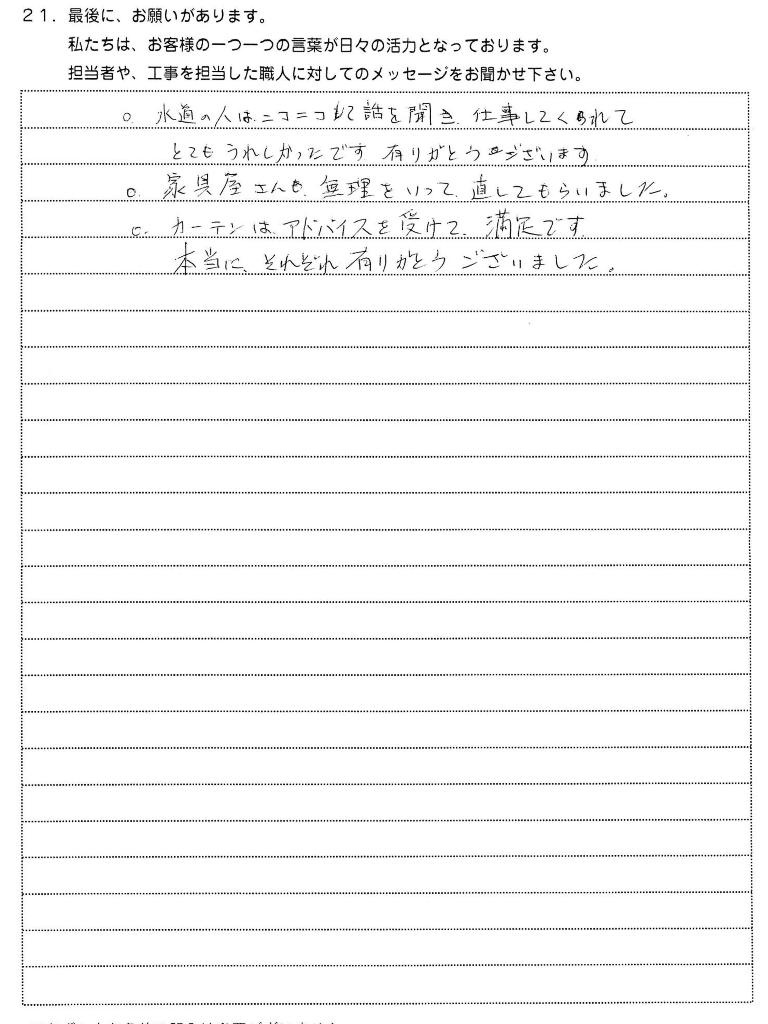 21. 最後に、お願いがあります。
私たちは、お客様の一つ一つの言葉が日々の活力となっております。
担当者や、工事を担当した職人に対してのメッセージをお聞かせ下さい。
o. 水道の人は、ニコニコして話を聞き、仕事してくれて
とてもうれしかったです 有りがとうございます
o. 家具屋さんも、無理をいって、直してもらいました。
o. カーテンは、アドバイスを受けて、満足です
本当に、それぞれ有りがとうございました。